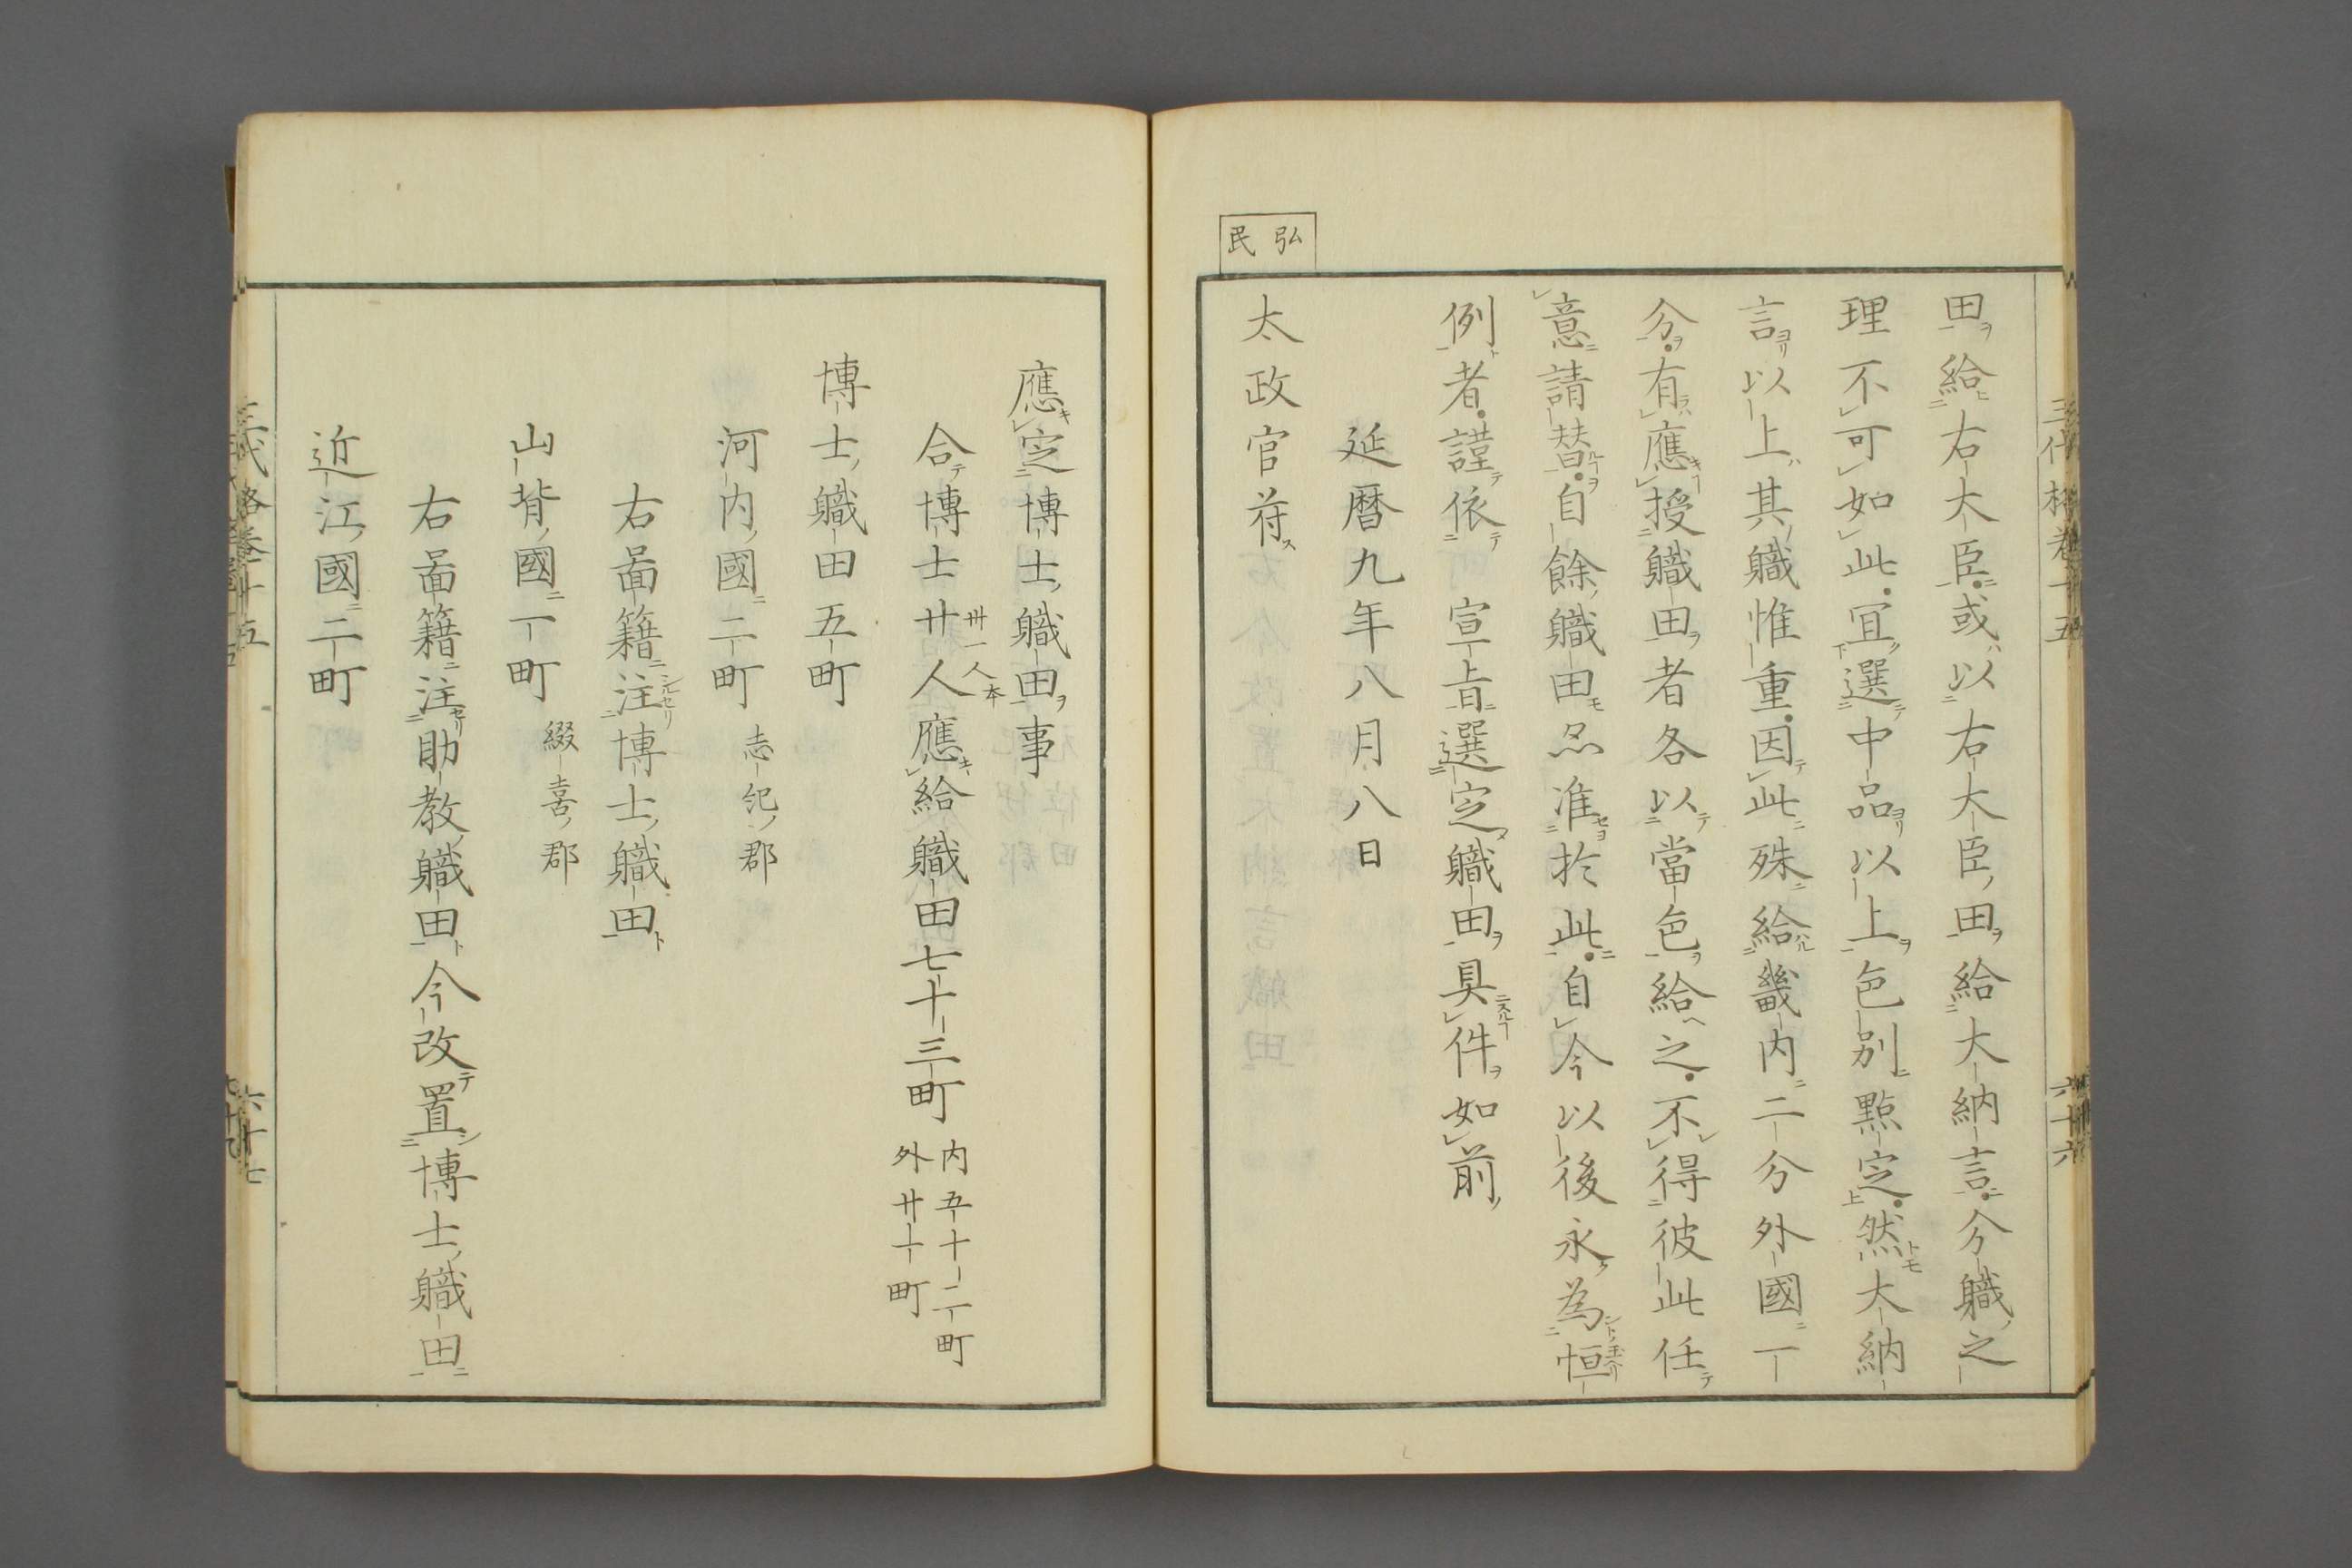 三代格卷十五
六十六
田給右大臣或以右大臣田給大納言分職之
理不可如此冝選中品以上色別點定然大納
言以上其職惟重因此殊給畿内二分外國一
分有應授職田者各以當色給之不得彼此任
意請替自餘職田亦准於此自今以後永為恒
例者謹依　宣上旨選定職田具件如前
延暦九年八月八日
弘民
太政官符
應定博士職田事
合博士廿人應給職田七十三町
卅一人本
内五十二町
外廿一町
博士職田五町
河内國二町　志紀郡
右啚籍注博士職田
山背國一町　綴喜郡
右啚籍注助教職田今改置博士職田
近江國二町
三代格卷十五
六十七